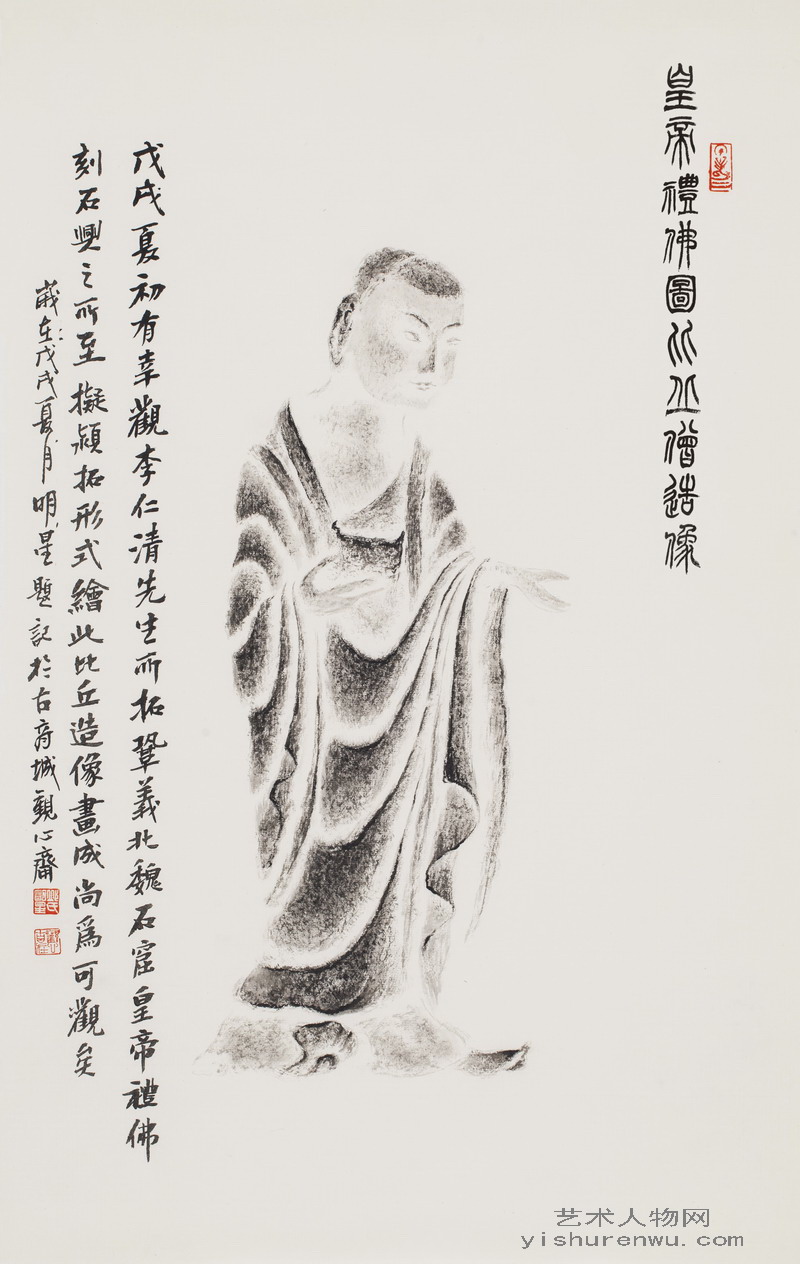 皇帝禮佛圖比丘僧造像
戊戌夏初有幸觀李仁清先生所拓鞏義北魏石窟皇帝禮佛
刻石興之所至擬潁拓形式繪此比丘造像畫成尚爲可觀矣
歲在戊戌夏月明星題記於古府城觀心齋
艺术人物网
yishurenwu.com